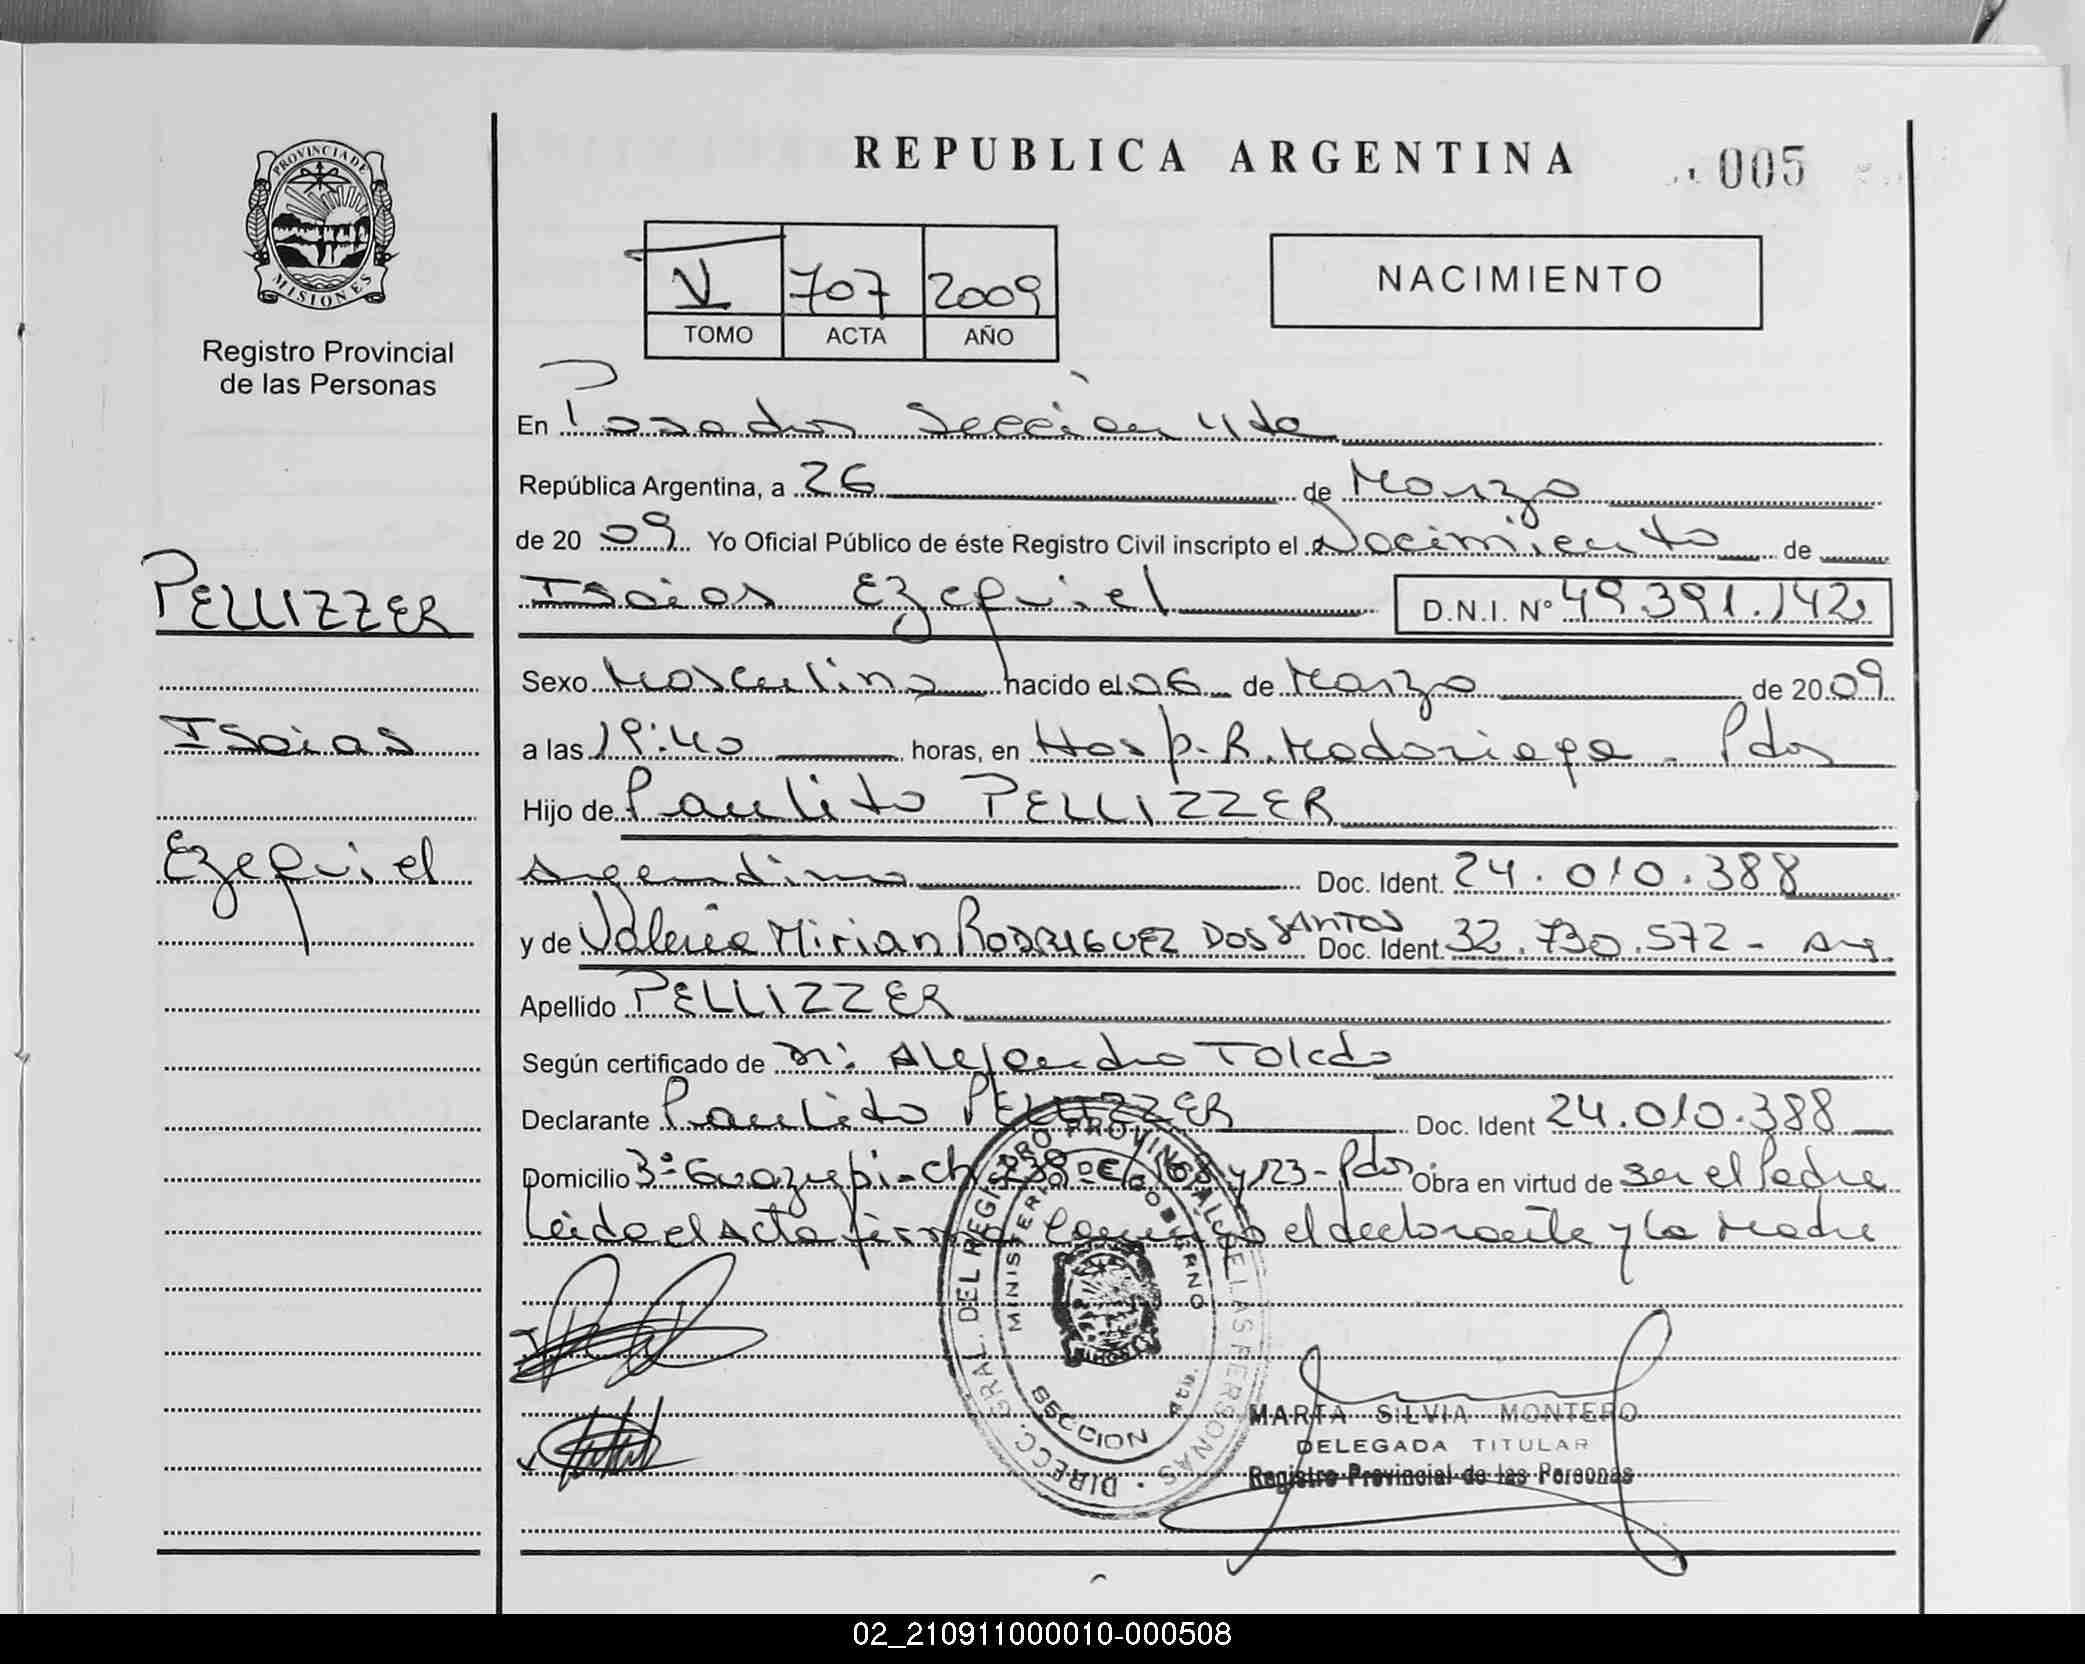 REPUBLICA ARGENTINA
005
PROVINCIA DE
MISIONES
Registro Provincial
de las Personas
V 707 2009
TOMO ACTA AÑO
NACIMIENTO
En Posadas Sección 4ta
República Argentina, a 26 de Marzo
de 20 09 Yo Oficial Público de éste Registro Civil inscripto el Nacimiento de
PELLIZZER
Isaias Ezequiel D.N.I. Nº 49.391.142
Sexo Masculino nacido el 06 de Marzo de 20 09
Isaias
a las 19:40 horas, en Hosp. R. Madariaga - Pdas
Hijo de Paulito PELLIZZER
Ezequiel
Argentino Doc. Ident. 24.010.388
y de Valeria Mirian RODRIGUEZ DOS SANTOS Doc. Ident. 32.730.572 - Arg.
Apellido PELLIZZER
Según certificado de Alejandro Toledo
Declarante Paulito PELLIZZER Doc. Ident 24.010.388
Domicilio 3º Guazupi - Ch. 238 C/ 168 y 123 - Pdas. Obra en virtud de ser el Padre
Leida el Acta firma conmigo el declarante y la Madre
DIREC. GRAL. DEL REGISTRO PROVINCIAL DE LAS PERSONAS
MINISTERIO DE GOBIERNO
SECCION 4ta.
MARTA SILVIA MONTERO
DELEGADA TITULAR
Registro Provincial de las Personas
02_210911000010-000508